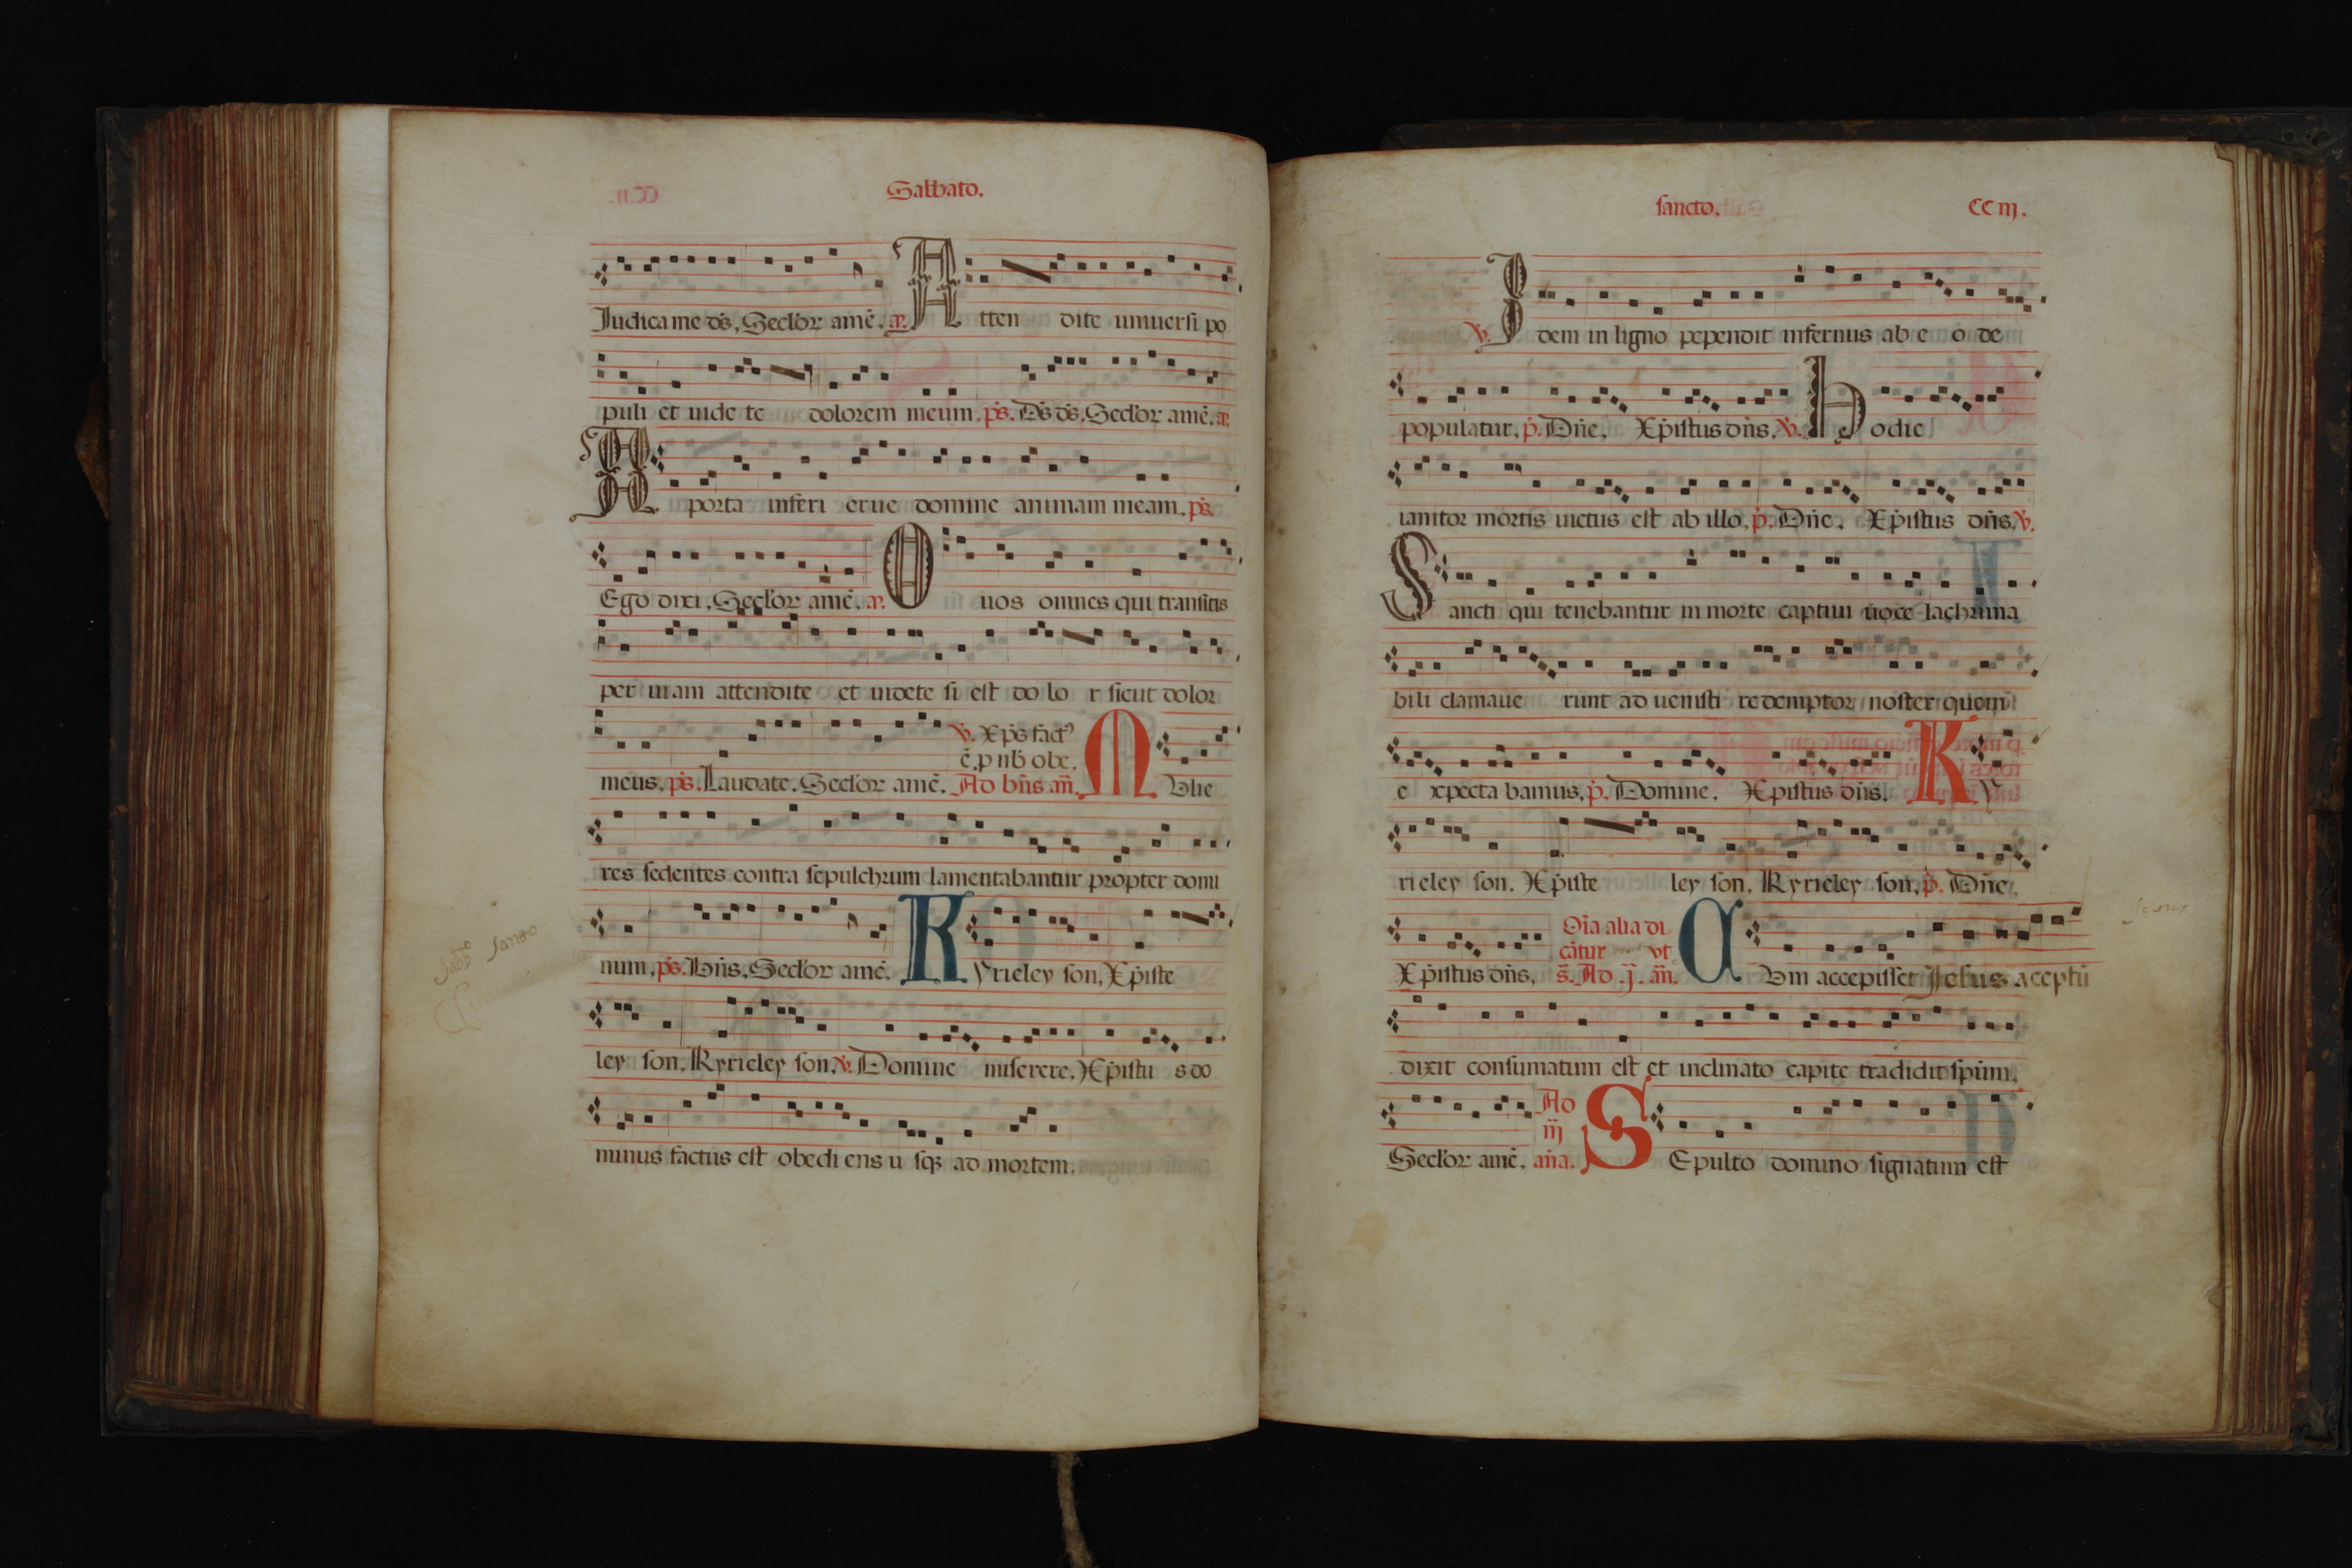 Sabbato.
Iudica me ds̄, Secl'or amē. a. Atten dite uniuersi po
puli et uide te dolorem meum. ps̄. Ds̄ ds̄. Secl'or amē. a.
A porta inferi erue domine animam meam. ps̄.
Ego dixi, Secl'or amē. a. O uos omnes qui transitis
per uiam attendite et uidete si est do lo r sicut dolor
v. Xp̄s fact⁹
ē. p nb̄ obe.
meus. ps̄. Laudate. Secl'or amē. Ad bn̄s an̄. Mulie
res sedentes contra sepulchrum lamentabantur propter domi
num, ps̄. Bn̄s, Secl'or amē. Kyrieley son, Xp̄iste
Sabb° Santo
ley son. Kyrieley son, v. Domine miserere. Xp̄istu s do
minus factus est obedi ens u sq3 ad mortem.
sancto.
CC iij.
v. Idem in ligno pependit infernus ab e o de
populatur, p̄. Dn̄e. Xp̄istus dn̄s. v. Hodie
ianitor mortis uictus est ab illo, p̄. Dn̄e. Xp̄istus dn̄s, v.
Sancti qui tenebantur in morte captiui uoce lachrima
bili clamaue runt ad uenisti redemptor noster quem
e xpecta bamus, p̄. Domine. Xpistus dn̄s. Ky
rieley son. Xp̄iste ley son. Kyrieley son, p̄. Dn̄e,
Oīa alia di
cātur vt
Xp̄istus dn̄s, s̄. Ad .j. an̄. Cum accepisset Jesus aceptū
dixit consumatum est et inclinato capite tradidit spūm,
Ad
iij
Secl'or amē, an̄a. Sepulto domino signatum est